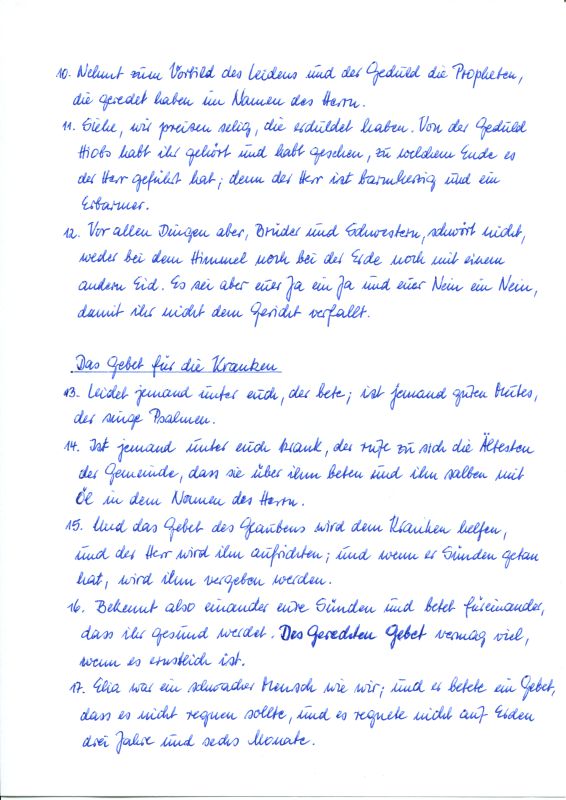 10. Nehmt zum Vorbild des Leidens und der Geduld die Propheten,
die geredet haben im Namen des Herrn.
11. Siehe, wir preisen selig, die erduldet haben. Von der Geduld
Hiobs habt ihr gehört und habt gesehen, zu welchem Ende es
der Herr geführt hat; denn der Herr ist barmherzig und ein
Erbarmer.
12. Vor allen Dingen aber, Brüder und Schwestern, schwört nicht,
weder bei dem Himmel noch bei der Erde noch mit einem
andern Eid. Es sei aber euer Ja ein Ja und euer Nein ein Nein,
damit ihr nicht dem Gericht verfallt.
Das Gebet für die Kranken
13. Leidet jemand unter euch, der bete; ist jemand guten Mutes,
der singe Psalmen.
14. Ist jemand unter euch krank, der rufe zu sich die Ältesten
der Gemeinde, dass sie über ihm beten und ihn salben mit
Öl in dem Namen des Herrn.
15. Und das Gebet des Glaubens wird dem Kranken helfen,
und der Herr wird ihn aufrichten; und wenn er Sünden getan
hat, wird ihm vergeben werden.
16. Bekennt also einander eure Sünden und betet füreinander,
dass ihr gesund werdet. Des Gerechten Gebet vermag viel,
wenn es ernstlich ist.
17. Elia war ein schwacher Mensch wie wir; und er betete ein Gebet,
dass es nicht regnen sollte, und es regnete nicht auf Erden
drei Jahre und sechs Monate.